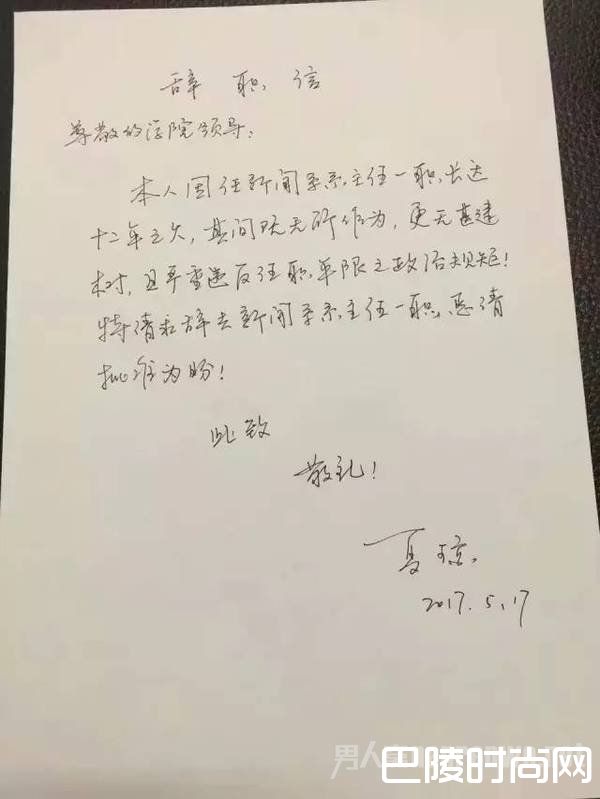 辞职信
尊敬的学院领导:
本人因任新闻系系主任一职长达
十二年之久,其间既无所作为,更无甚建
树,且严重违反任职年限之政治规矩!
特请求辞去新闻系系主任一职,恳请
批准为盼!
此致
敬礼!
夏琼
2017.5.17
巴陵时尚网